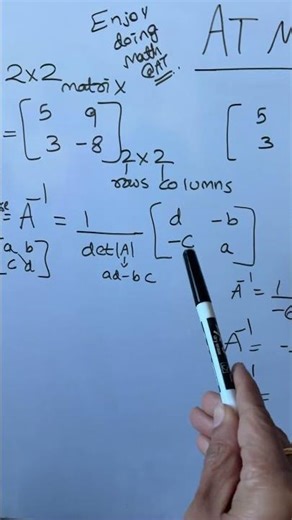 Enjoy
doing
math
@AT
AT M
2x2
matrix
= [ 5 9
3 -8 ]
[ 5
3
2x2
rows columns
A⁻¹ = 1 / det|A| [ d -b
-c a ]
ad-bc
a b
c d ]
A⁻¹ = 1
-6
A⁻¹ = -
⁻¹ =